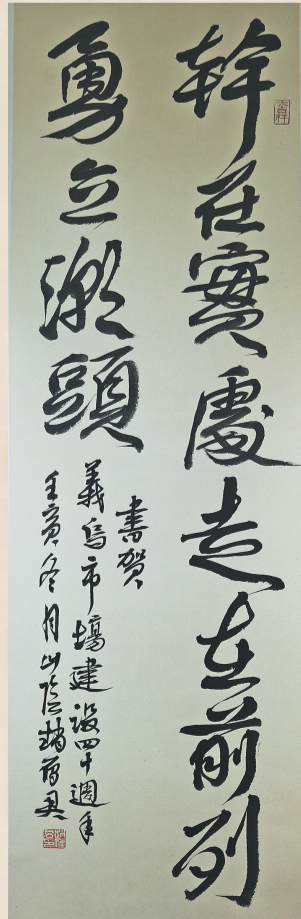 幹在實處走在前列
勇立潮頭
書賀
義烏市場建設四十週年
壬寅冬月山陰趙雁君
大吉祥